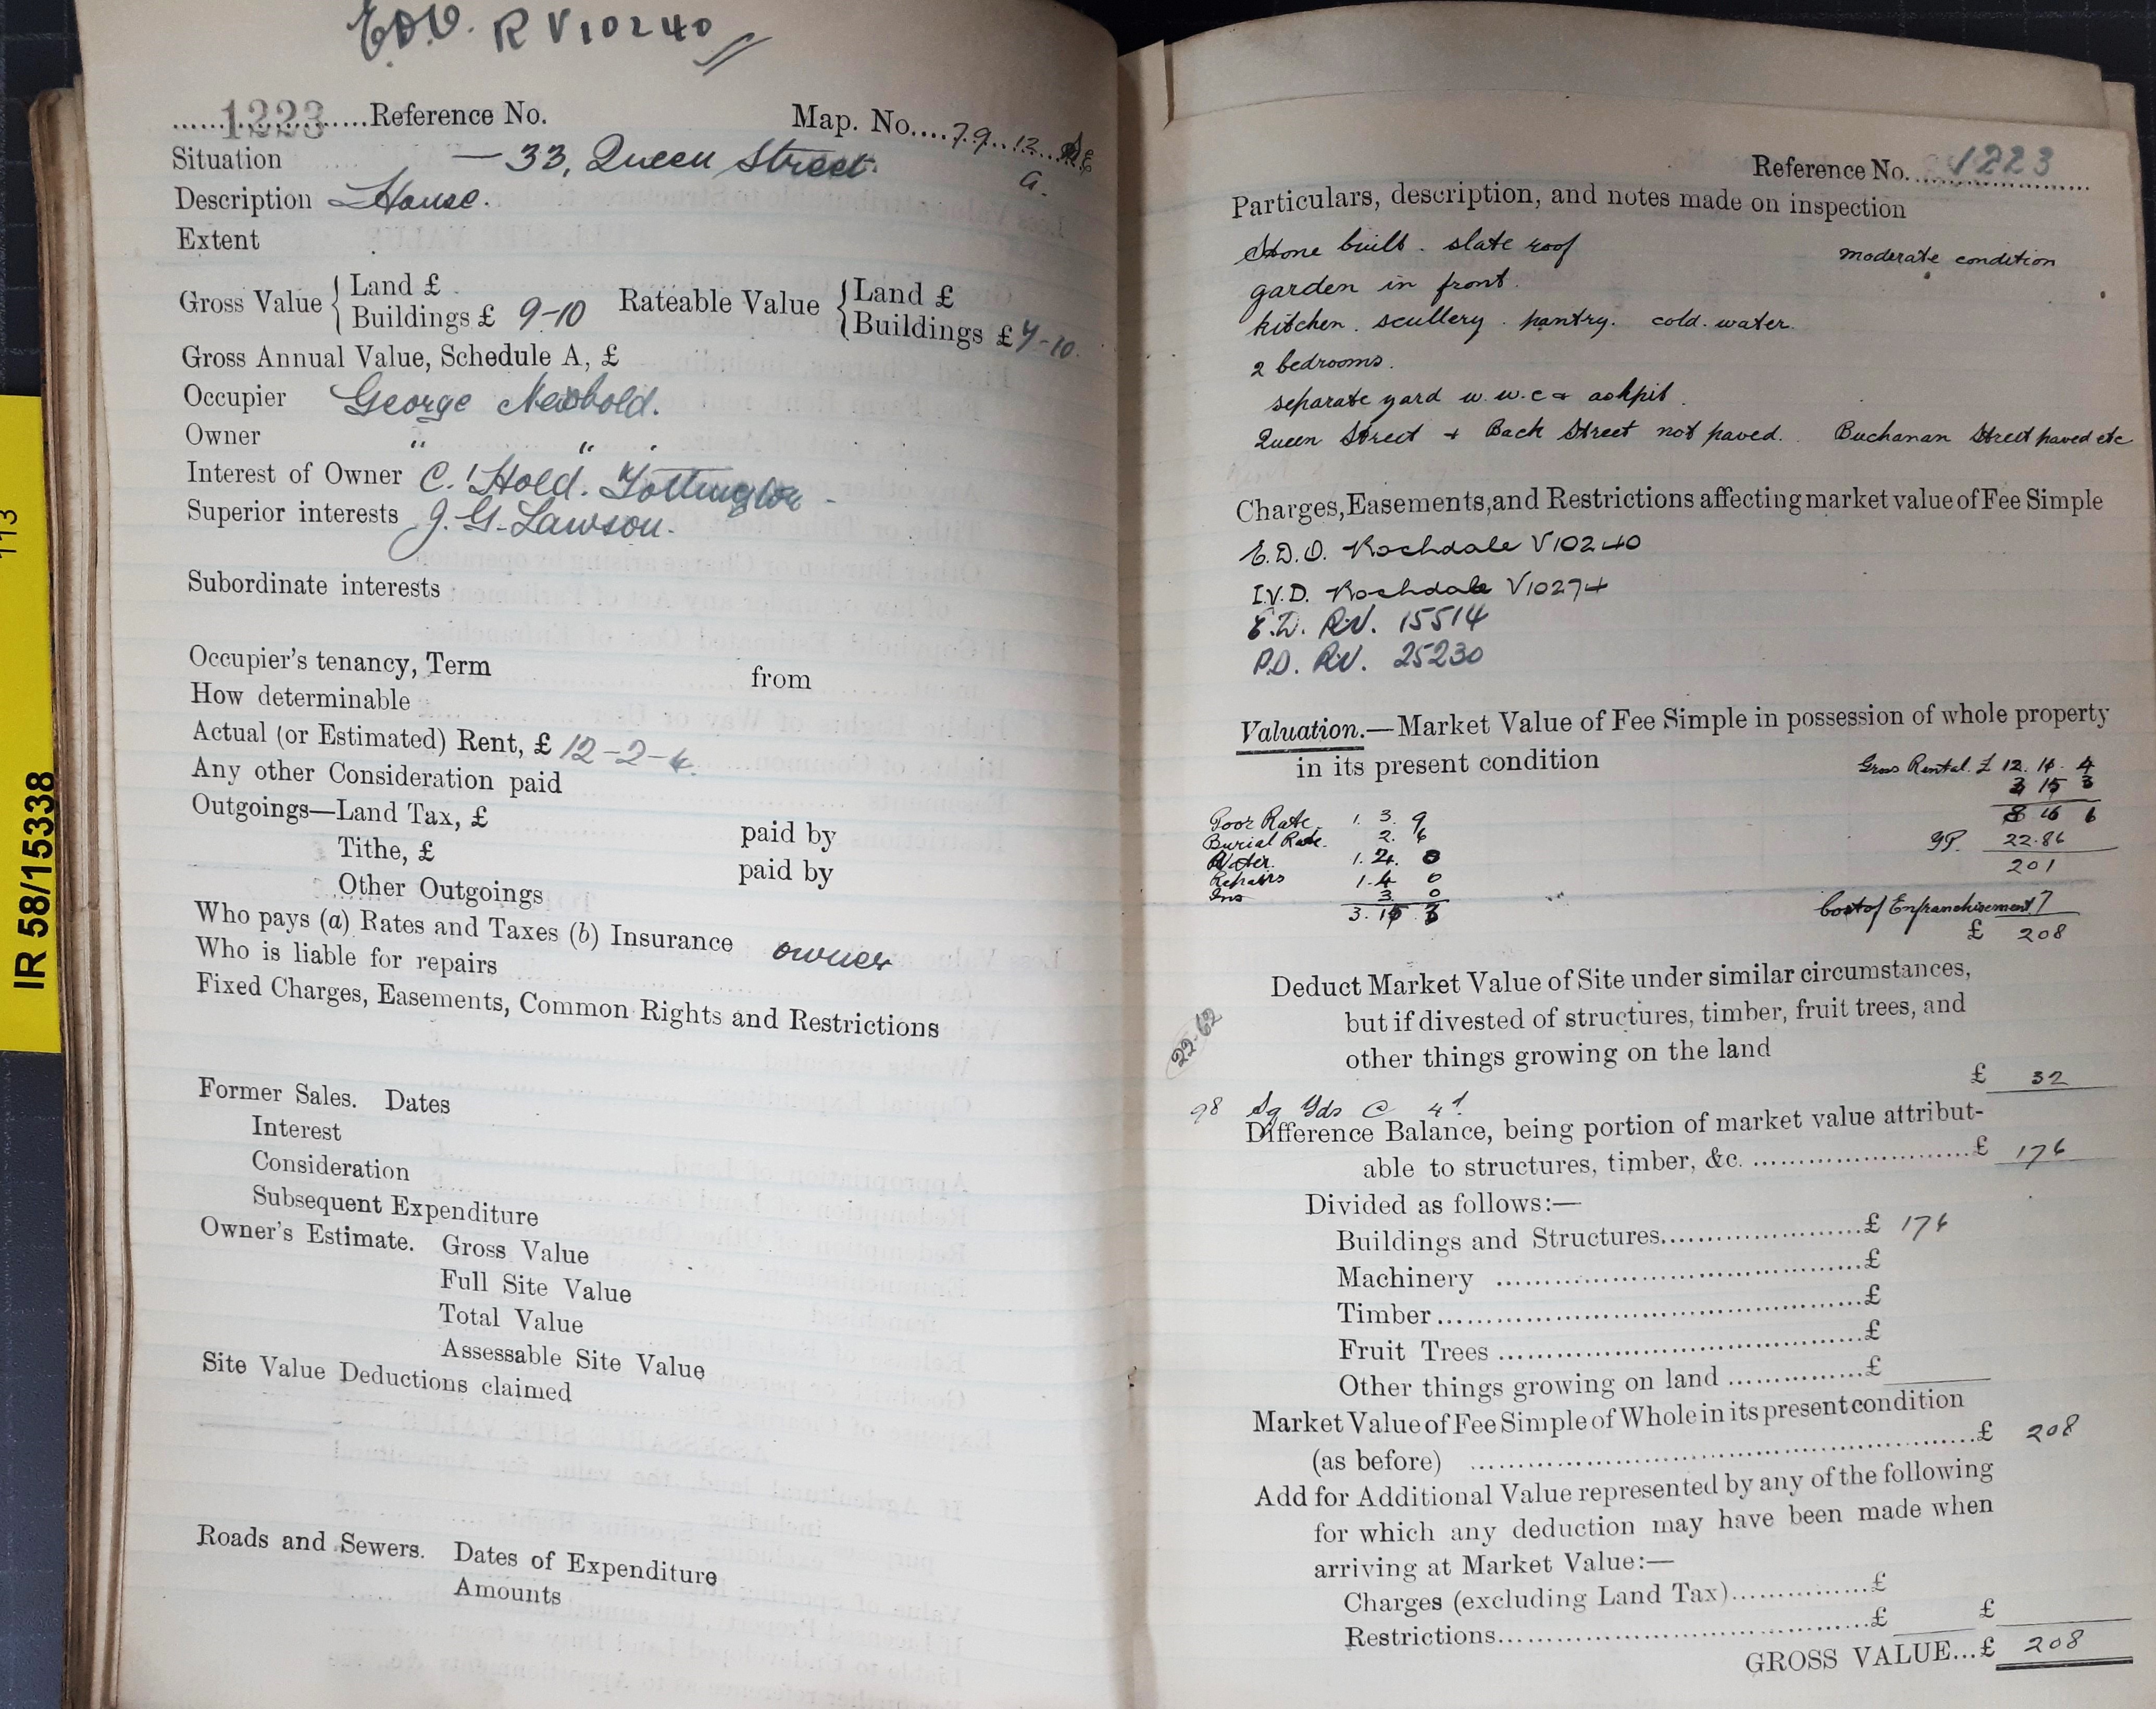 E.D.O. R V10240
1223 Reference No. Map. No. 79. 12. SE
a.
Situation — 33, Queen Street.
Description House.
Extent
Gross Value { Land £
Buildings £ 9-10 Rateable Value { Land £
Buildings £ 7-10.
Gross Annual Value, Schedule A, £
Occupier George Newbold.
Owner " "
Interest of Owner C. Hold. Tottington -
Superior interests J. G. Lawson.
Subordinate interests
Occupier's tenancy, Term from
How determinable
Actual (or Estimated) Rent, £ 12-2-4.
Any other Consideration paid
Outgoings—Land Tax, £ paid by
Tithe, £ paid by
Other Outgoings
Who pays (a) Rates and Taxes (b) Insurance owner
Who is liable for repairs
Fixed Charges, Easements, Common Rights and Restrictions
Former Sales. Dates
Interest
Consideration
Subsequent Expenditure
Owner's Estimate. Gross Value
Full Site Value
Total Value
Assessable Site Value
Site Value Deductions claimed
Roads and Sewers. Dates of Expenditure
Amounts
113
IR 58/15338
Reference No. 1223
Particulars, description, and notes made on inspection
Stone built. slate roof moderate condition
garden in front.
kitchen. scullery. pantry. cold. water.
2 bedrooms.
separate yard w. w.c & ashpit.
Queen Street + Back Street not paved. Buchanan Street paved etc
Charges, Easements, and Restrictions affecting market value of Fee Simple
E.D.O. Rochdale V10240
I.V.D. Rochdale V10274
E.D. R.V. 15514
P.D. R.V. 25230
Valuation.—Market Value of Fee Simple in possession of whole property
in its present condition
Gross Rental. £ 12. 14. 4
3 15 3
Poor Rate 1. 3. 9 8 16 6
Burial Rate. 2. 6 YP. 22.86
Water. 1. 2. 0 201
Repairs 1. 4 0
Ins 3. 0 Cost of Enfranchisement 7
3. 15 3 £ 208
Deduct Market Value of Site under similar circumstances,
but if divested of structures, timber, fruit trees, and
other things growing on the land
22.62
£ 32
98 Sq Yds @ 4d.
Difference Balance, being portion of market value attribut-
able to structures, timber, &c. £ 176
Divided as follows:—
Buildings and Structures £ 176
Machinery £
Timber £
Fruit Trees £
Other things growing on land £
Market Value of Fee Simple of Whole in its present condition
(as before) £ 208
Add for Additional Value represented by any of the following
for which any deduction may have been made when
arriving at Market Value:—
Charges (excluding Land Tax) £
Restrictions £ £
GROSS VALUE...£ 208